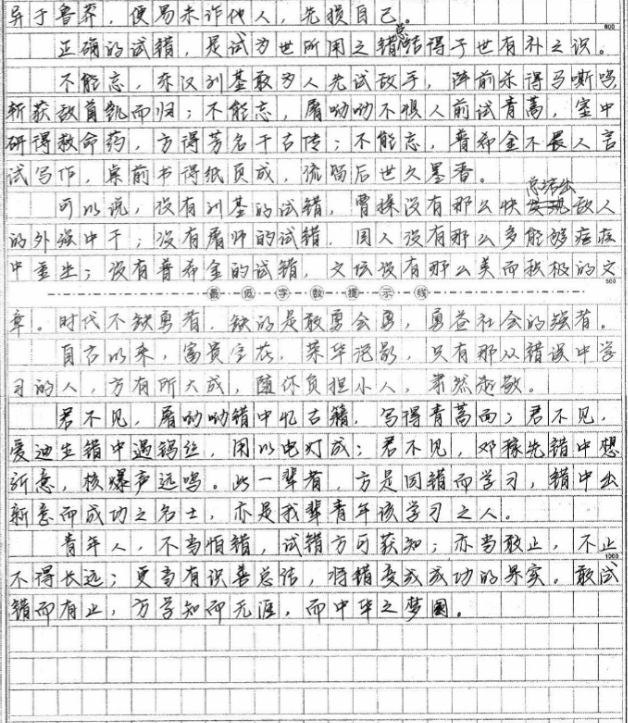 异于鲁莽，便易未诈他人，先损自己。
600
正确的试错，是试为世所用之错，总结得于世有补之识。
不能忘，东汉刘基敢为人先试敌手，阵前杀得马嘶鸣
斩获敌首凯而归；不能忘，屠呦呦不惧人前试青蒿，室中
研得救命药，方得芳名千古传；不能忘，普希金不畏人言
试写作，桌前书得纸页成，流留后世久墨香。
可以说，没有刘基的试错，曹操没有那么快总结出敌人
的外强中干；没有屠师的试错，国人没有那么多能够痊症
中重生；没有普希金的试错，文坛没有那么美而积极的文
最低字数提示线
800
章。时代不缺勇者，缺的是敢勇会勇，勇益社会的强者。
自古以来，富贵空花，荣华泡影，只有那从错误中学
习的人，方有所大成，随你负担小人，肃然起敬。
君不见，屠呦呦错中忆古籍，写得青蒿而；君不见，
爱迪生错中遇钨丝，用以电灯成；君不见，邓稼先错中想
新意，核爆声远鸣。此一辈者，方是因错而学习，错中出
新意而成功之名士，亦是我辈青年该学习之人。
青年人，不当怕错，试错方可获知；亦当敢止，不止
1000
不得长远；更当有识善总结，将错变成成功的果实。敢试
错而有止，方学知而无涯，而中华之梦圆。